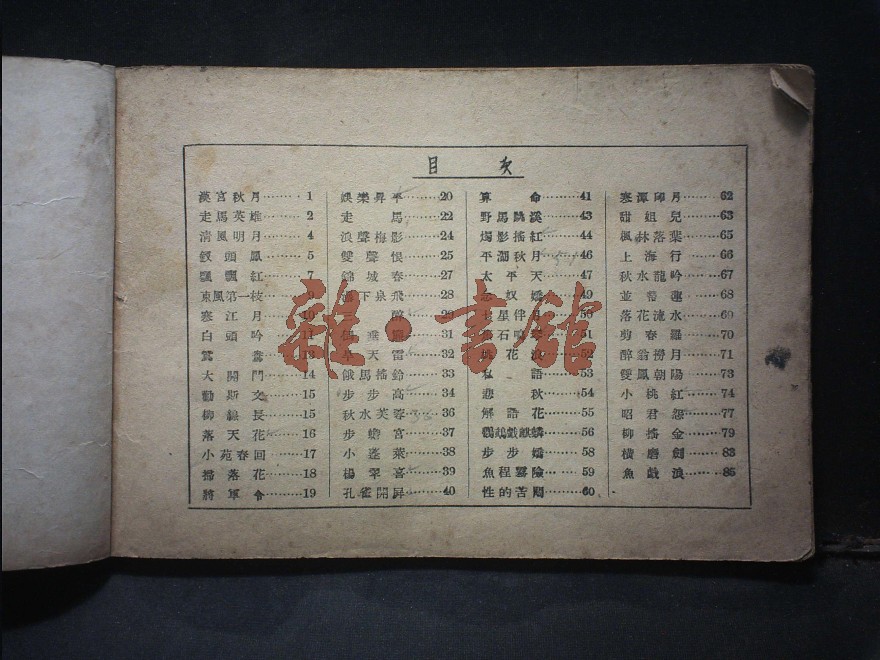 目 次
漢宮秋月………1
走馬英雄………2
清風明月………4
釵頭鳳………5
飄飄紅………7
東風第一枝………9
寒江月………10
白頭吟………11
鴛鴦………13
大開門………14
勸斯文………15
柳絲長………15
落天花………16
小苑春回………17
掃落花………18
將軍令………19
娛樂昇平………20
走馬………22
浪聲梅影………24
雙聲恨………25
錦城春………27
下泉飛………28
醉………29
垂………31
旱天雷………32
餓馬搖鈴………33
步步高………34
秋水芙蓉………36
步蟾宮………37
小蓬萊………38
楊翠喜………39
孔雀開屏………40
算命………41
野馬跳溪………43
燭影搖紅………44
平湖秋月………46
太平天………47
奴嬌………49
七星伴月………50
石鳴琴………51
花浪………52
私語………53
悲秋………54
解語花………55
鸚鵡戲麒麟………56
步步嬌………58
魚程霧險………59
性的苦悶………60
寒潭印月………62
甜姐兒………63
楓林落葉………65
上海行………66
秋水龍吟………67
並蒂蓮………68
落花流水………69
剪春羅………70
醉翁撈月………71
雙鳳朝陽………73
小桃紅………74
昭君怨………77
柳搖金………79
橫磨劍………83
魚戲浪………85
雜·書館